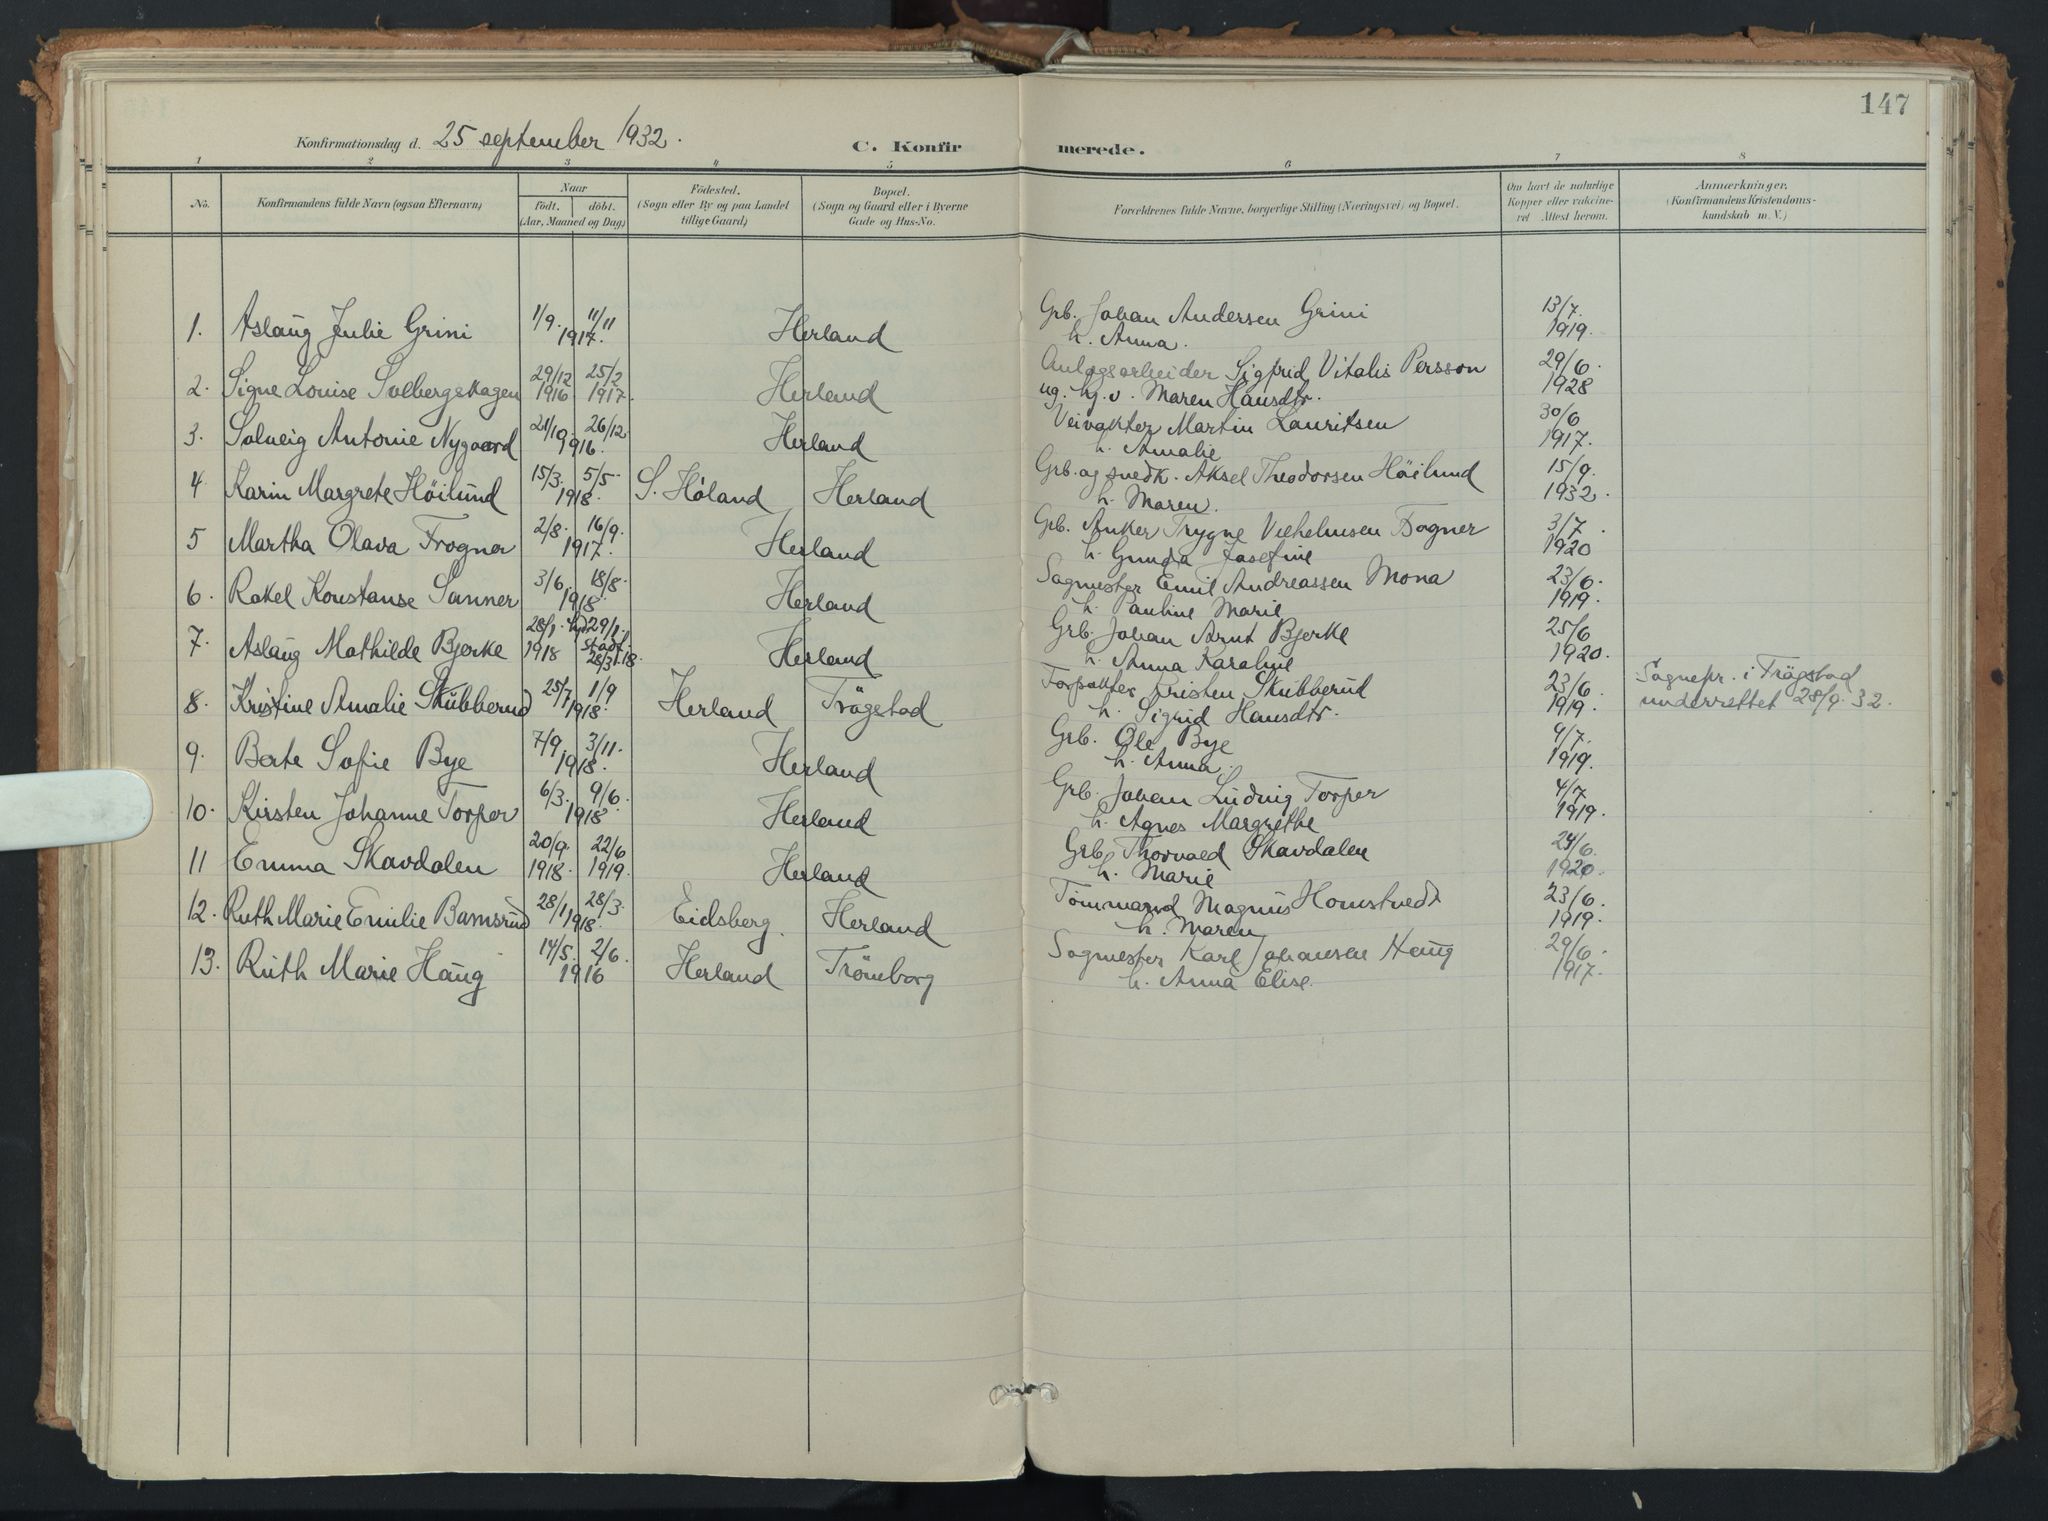 147
Konfirmationsdag d. 25 september 1932. C. Konfirmerede.
1 2 3 4 5 6 7 8
No. Konfirmandens fulde Navn (ogsaa Efternavn) Naar födt. döbt. (Aar, Maaned og Dag) Födested. (Sogn eller By og paa Landet tillige Gaard) Bopæl. (Sogn og Gaard eller i Byerne Gade og Hus-No. Forældrenes fulde Navne, borgerlige Stilling (Næringsvei) og Bopæl. Om havt de naturlige Kopper eller vakcineret Attest herom. Anmærkninger. (Konfirmandens Kristendomskundskab m. V.)
1. Aslaug Julie Grini 1/9. 11/11 1917. Herland Grb. Johan Andersen Grini h. Anna. 13/7. 1919.
2. Signe Louise Solbergskagen 29/12 1916 25/2 1917. Herland Anlægsarbeider Sigfrid Vitalis Persson ug. hj. v. Maren Hansdtr. 29/6. 1928
3. Solveig Antonie Nygaard 21/10 26/12. 1916. Herland Veivokter Martin Lauritsen h. Amalie 30/6 1917.
4 Karin Margrete Höilund 15/3. 5/5- 1918. S. Höland Herland Grb. og snedk. Aksel Theodorsen Höilund h. Maren. 15/9. 1932.
5 Martha Olava Frogner 2/8. 16/9. 1917. Herland Grb. Anker Trygve Vilhelmsen Frogner h. Gunda Josefine 3/7. 1920
6. Rakel Konstanse Sanner 3/6. 18/8. 1918. Herland Sagmester Emil Andreassen Mona h. Pauline Marie 23/6. 1919.
7. Aslaug Mathilde Bjerke 28/1. 1918 29/1. stadf. 28/3 18. Herland Grb. Johan Arnt Bjerke h. Anna Karoline 25/6 1920.
8. Kristine Amalie Skubberud 25/7 1/9 1918. Herland Trögstad Forpakter Kristen Skubberud h. Sigrid Hansdtr. 23/6. 1919. Sognepr. i Trögstad underrettet 28/9. 32.
9. Berte Sofie Bye 7/9. 3/11. 1918. Herland Grb. Ole Bye h. Anna. 9/7. 1919.
10. Kirsten Johanne Torper 6/3. 9/6. 1918. Herland Grb. Johan Ludvig Torper h. Agnes Margrethe 4/7 1919.
11 Emma Skavdalen 20/9. 1918. 22/6 1919. Herland Grb. Thorvald Skavdalen h. Marie 24/6. 1920.
12. Ruth Marie Emilie Bamsrud 28/1 28/3. 1918. Eidsberg. Herland Tömmermd Magnus Homstvedt h. Maren 23/6. 1919.
13. Ruth Marie Haug 14/5. 2/6. 1916 Herland Tröneborg Sagmester Karl Johansen Haug h. Anna Elise. 29/6. 1917.